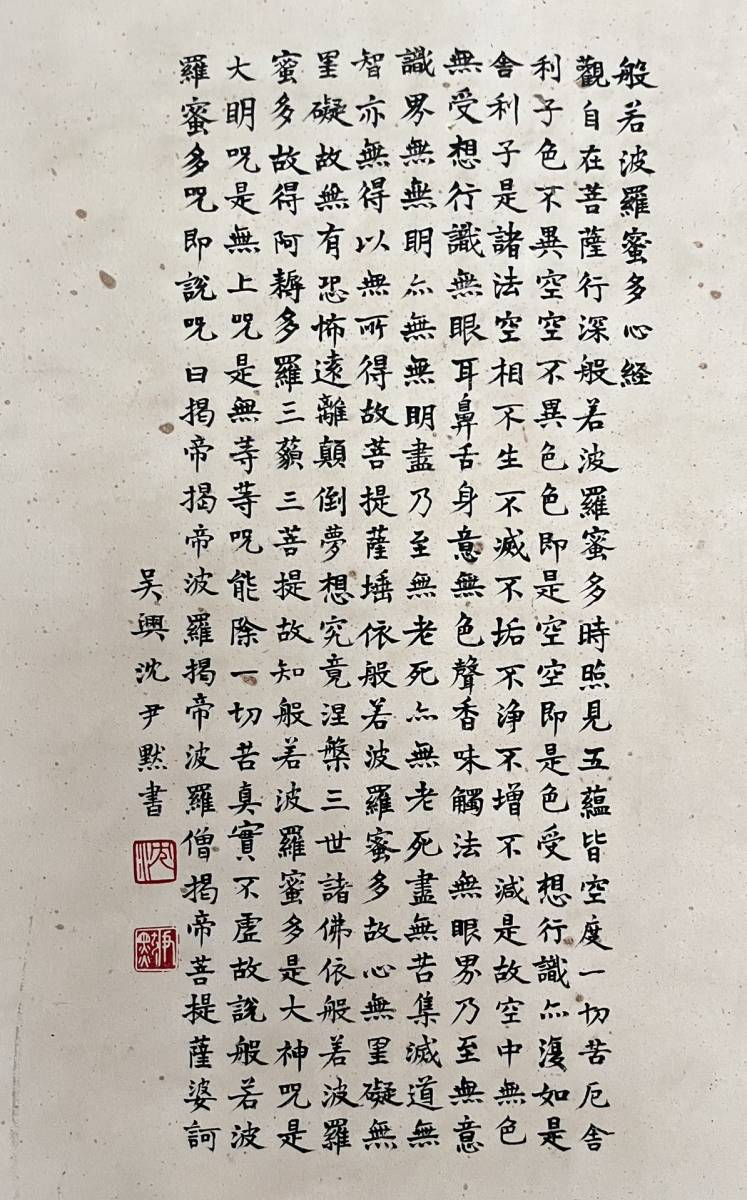 般若波羅蜜多心経
觀自在菩薩行深般若波羅蜜多時照見五蘊皆空度一切苦厄舍
利子色不異空空不異色色即是空空即是色受想行識亦復如是
舍利子是諸法空相不生不滅不垢不淨不增不減是故空中無色
無受想行識無眼耳鼻舌身意無色聲香味觸法無眼界乃至無意
識界無無明亦無無明盡乃至無老死亦無老死盡無苦集滅道無
智亦無得以無所得故菩提薩埵依般若波羅蜜多故心無罣礙無
罣礙故無有恐怖遠離顛倒夢想究竟涅槃三世諸佛依般若波羅
蜜多故得阿耨多羅三藐三菩提故知般若波羅蜜多是大神咒是
大明咒是無上咒是無等等咒能除一切苦真實不虛故說般若波
羅蜜多咒即說咒曰揭帝揭帝波羅揭帝波羅僧揭帝菩提薩婆訶
吳興沈尹默書
沈
尹默